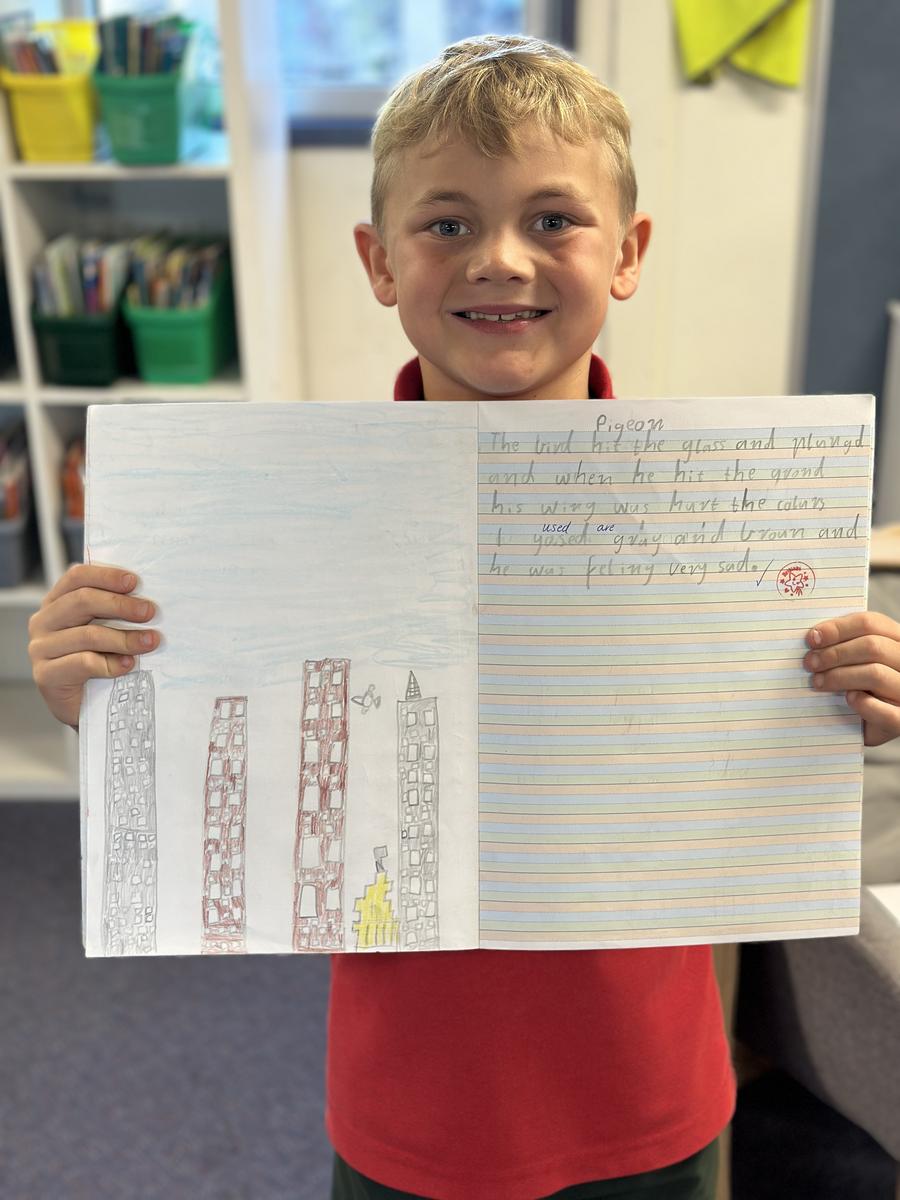 Pigeon
The bird hit the glass and plungd
and when he hit the grond
his wing was hurt the colurs
used are
I yosed gray and broun and
he was feling very sad.